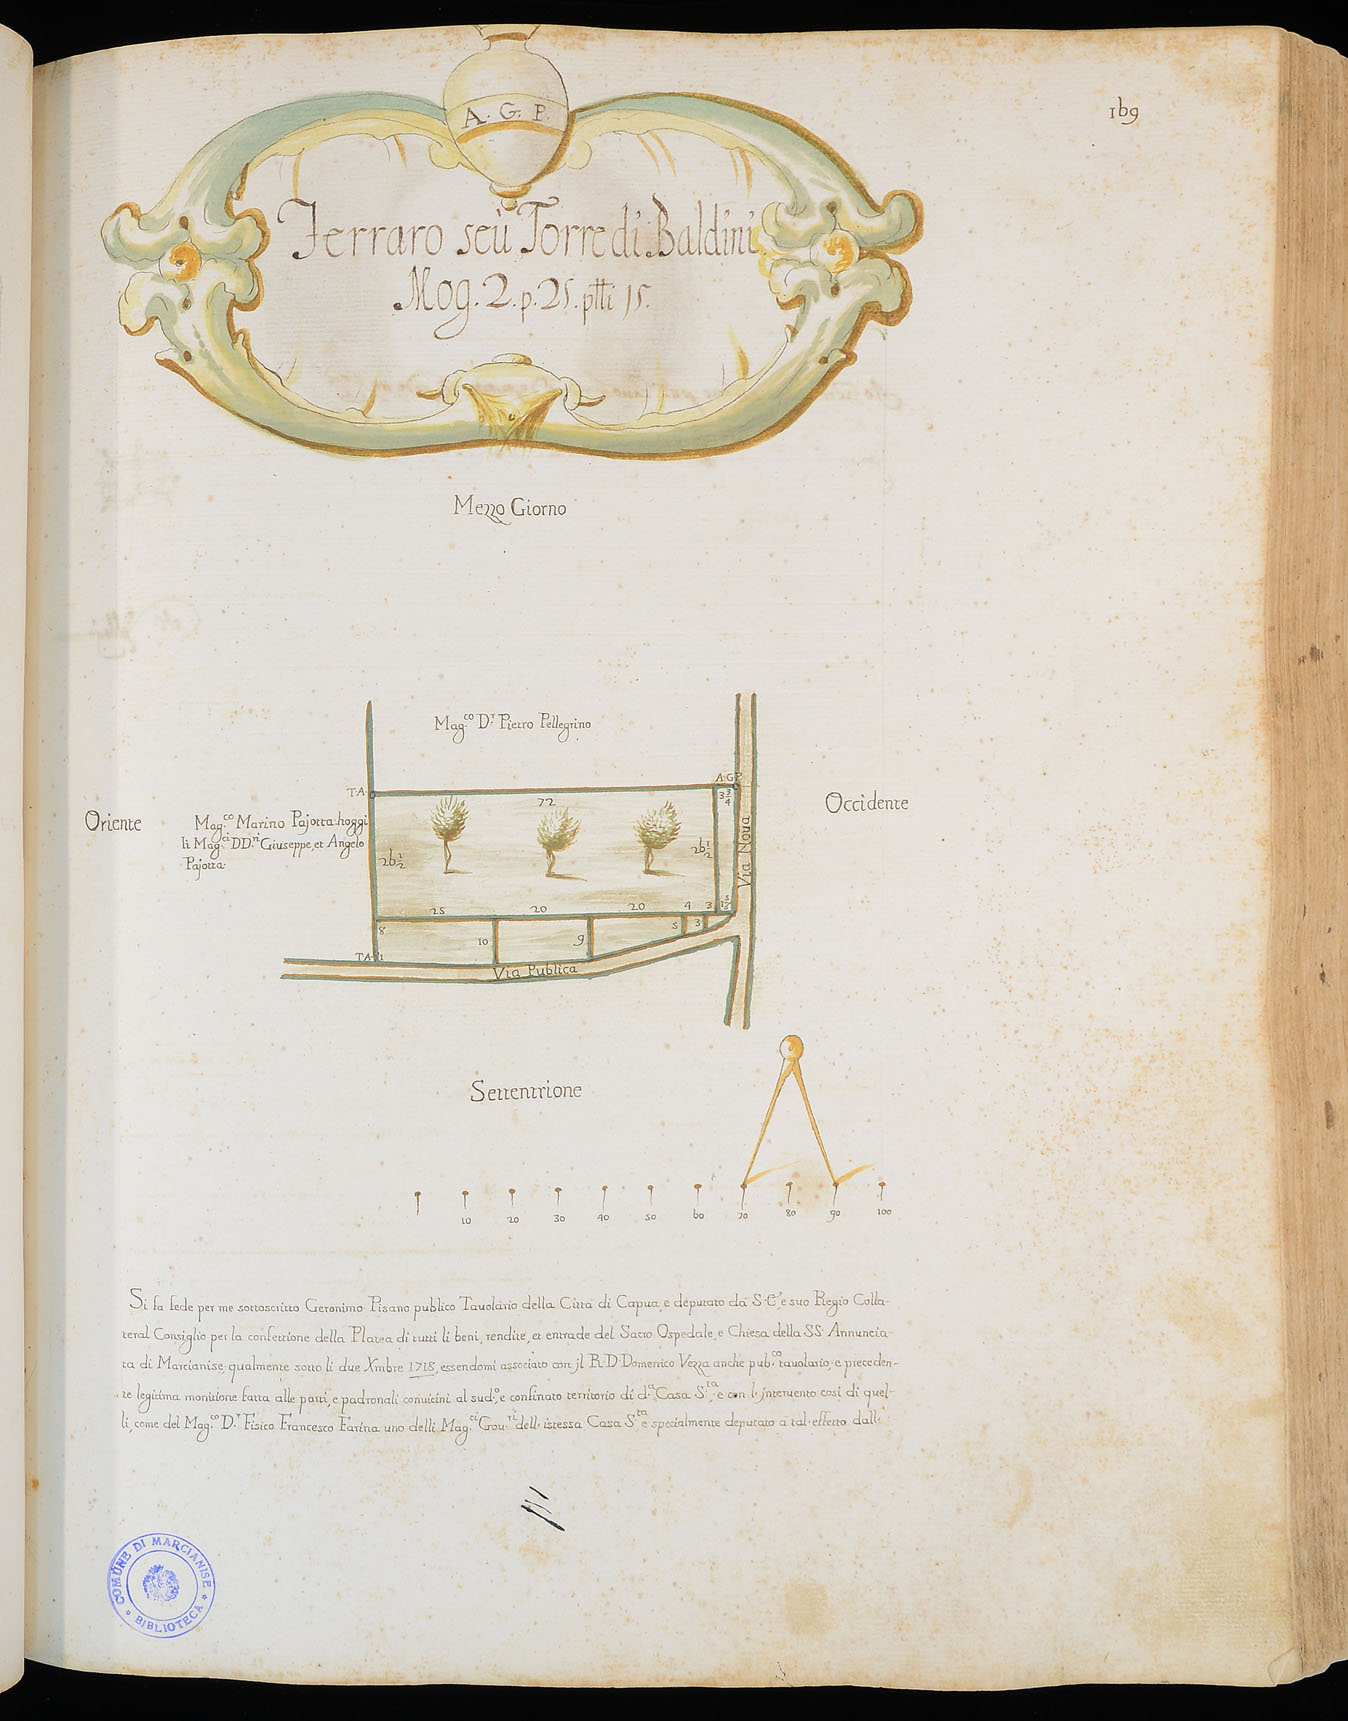 169
A. G. P.
Ferraro seù Torre di Baldini
Mog. 2. p. 25. ptti 15.
Mezzo Giorno
Mag.co D.r Pietro Pellegrino
T·A·
A·G·P
72
3 3/4
Oriente
Occidente
Mag.co Marino Pajotta hoggi
li Mag.ci DD.ri Giuseppe, et Angelo
Pajotta
26 1/2
26 1/2
Via Noua
25
20
20
4
3
8
10
9
5
3
T·A·
Via Publica
Settentrione
10 20 30 40 50 60 70 80 90 100
Si fa fede per me sottoscritto Geronimo Pisano publico Tauolario della Città di Capua, e deputato da S·E·, e suo Regio Colla-
teral Consiglio per la confettione della Platea di tutti li beni, rendite, et entrade del Sacro Ospedale, e Chiesa della SS· Annuncia-
ta di Marcianise, qualmente sotto li due Xmbre 1718, essendomi associato con jl R· D· Domenico Vezza anche pub.co tauolario, e preceden-
te legitima monitione fatta alle parti, e padronali conuicini al sud.o, e confinato territorio di d.a Casa S.ta, e con l· jnteruento così di quel-
li, come del Mag.co D.r Fisico Francesco Farina uno delli Mag.ci Gou.ri dell· istessa Casa S.ta e specialmente deputato à tal· effetto dall·
COMUNE DI MARCIANISE
BIBLIOTECA